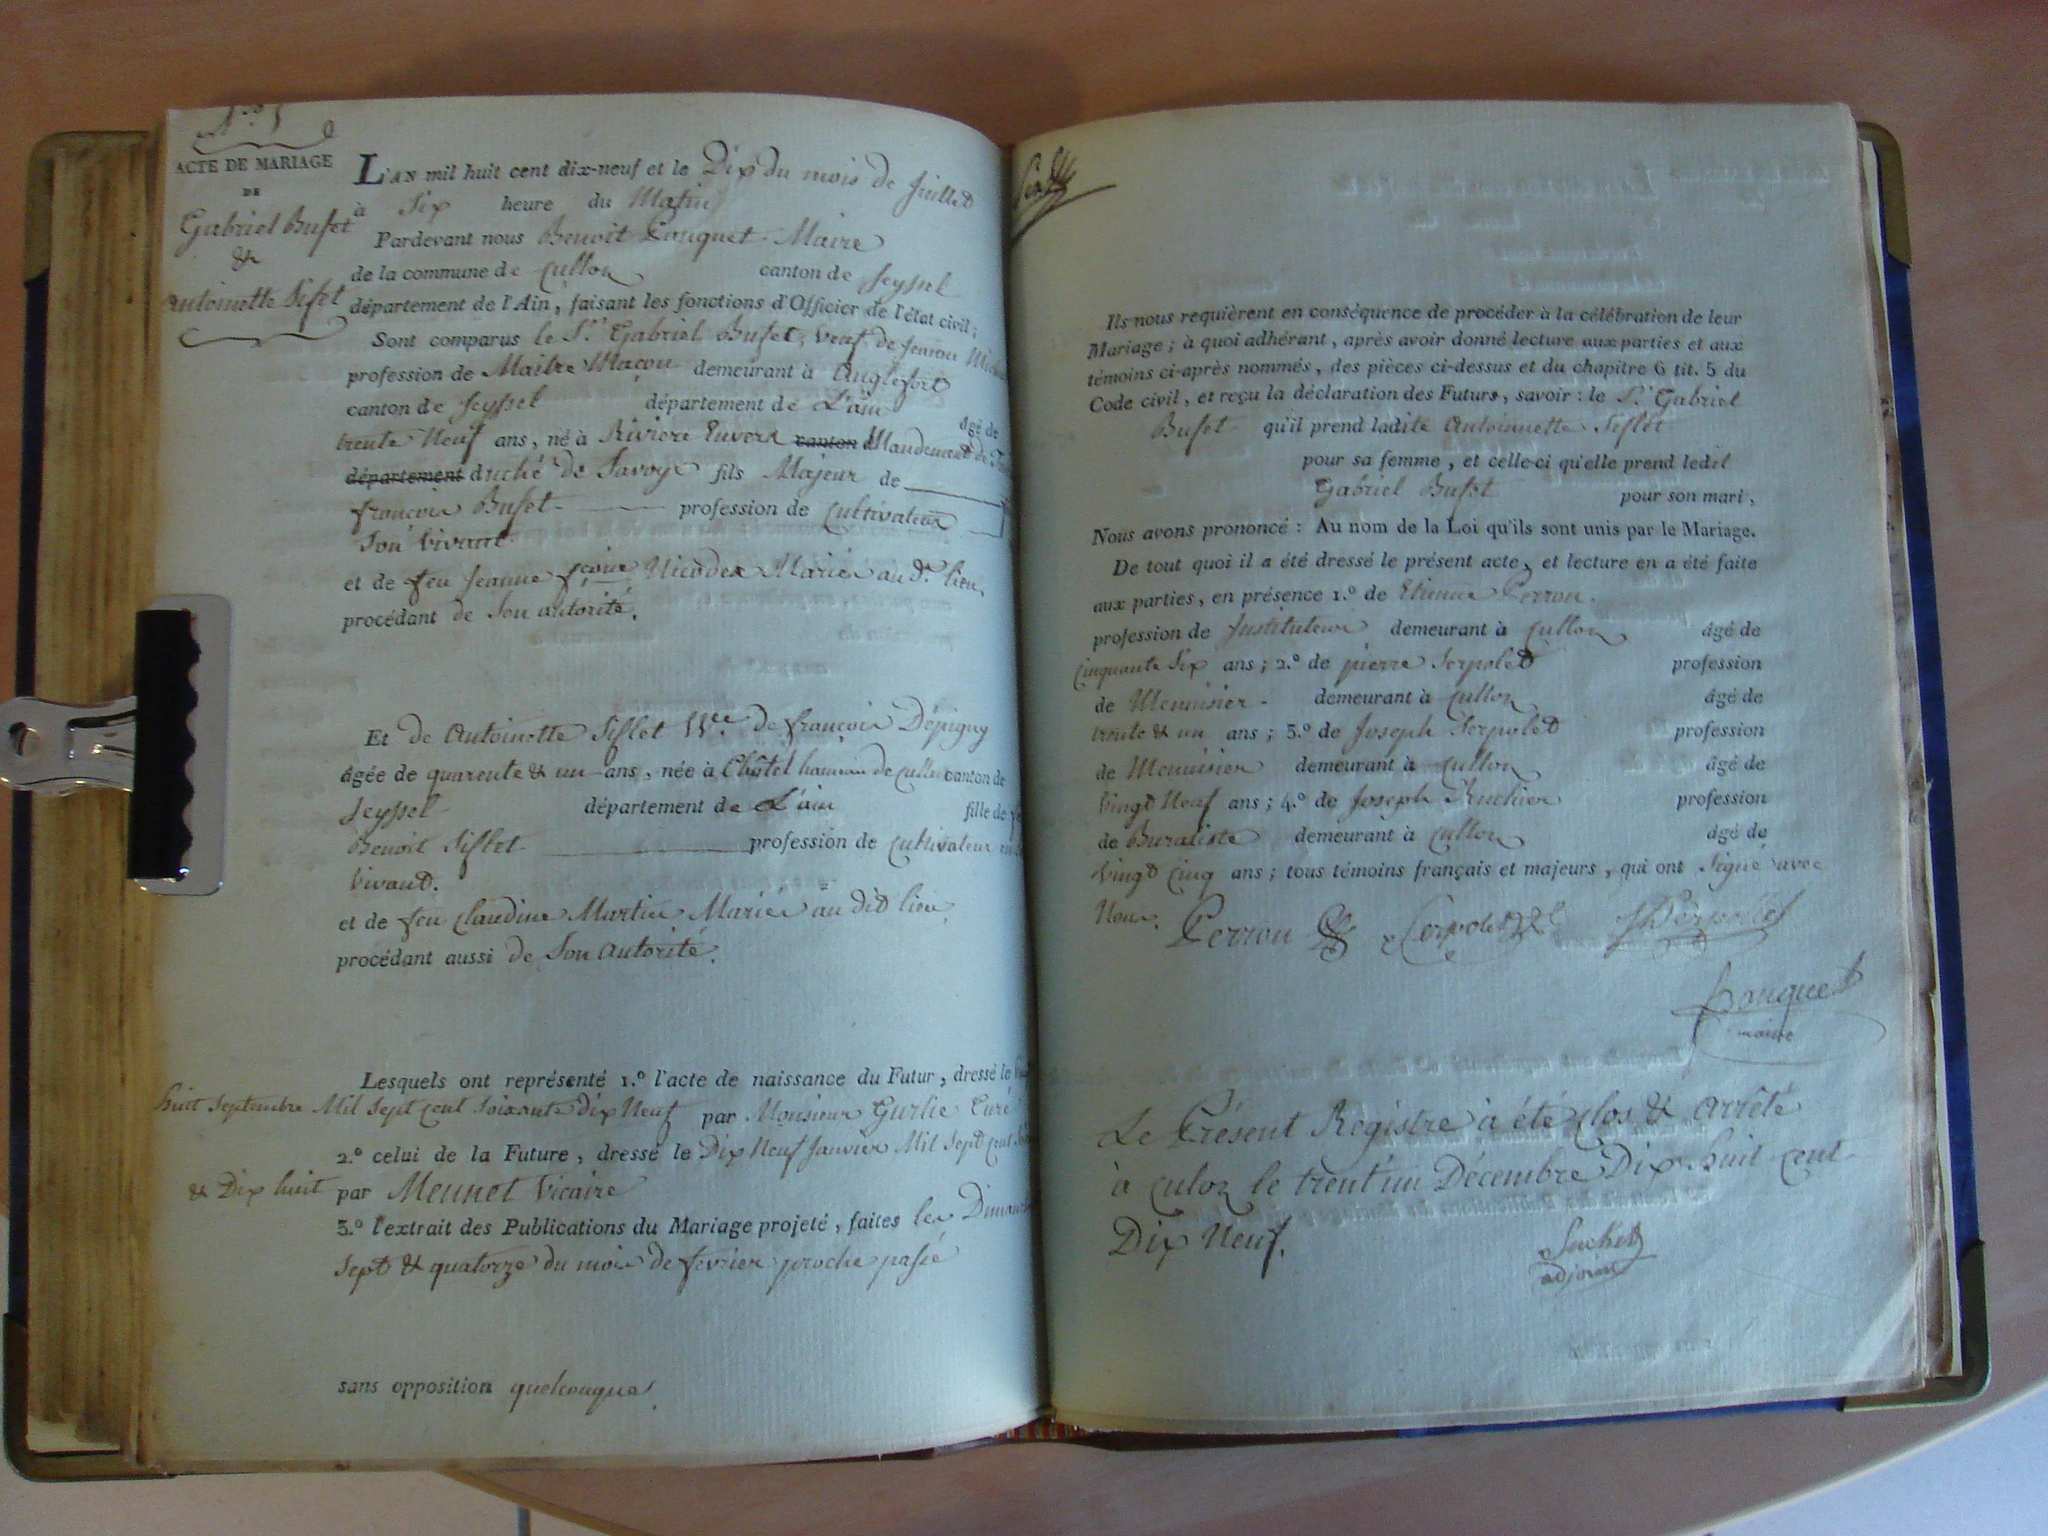 N.° 5
ACTE DE MARIAGE
DE
Gabriel Bufet
&
Antoinette Siflet
L'AN mil huit cent dix-neuf et le Dix du mois de Juillet
à Six heure du Matin
Pardevant nous Benoit Bouquet Maire
de la commune de Culloz canton de Seyssel
département de l'Ain, faisant les fonctions d'Officier de l'état civil;
Sont comparus le S.r Gabriel Bufet, Veuf de Jeanne
profession de Maitre Maçon demeurant à Anglefort
canton de Seyssel département de L'ain âgé de
trente Neuf ans, né à Riviere Envers canton Mandement de
département duché de Savoye fils Majeur de
françois Bufet profession de Cultivateur
Son Vivant
et de feu Jeanne fçoise Nicodex Mariés au d.t lieu,
procédant de Son autorité.
Et de Antoinette Siflet V.ve de francois Dépigny
âgée de quarente & un ans, née à Châtel hameau de Culloz canton de
Seyssel département de L'ain fille de
Benoit Siflet profession de cultivateur
Vivant.
et de feu Claudine Martin Mariés au dit lieu,
procédant aussi de Son Autorité.
Lesquels ont représenté 1.° l'acte de naissance du Futur, dressé le
huit Septembre Mil Sept Cent Soixante Dix Neuf par Monsieur Gurlie Curé
2.° celui de la Future, dressé le Dix Neuf Janvier Mil Sept Cent
& Dix huit par Meunet Vicaire
3.° l'extrait des Publications du Mariage projeté, faites les Dimanches
Sept & quatorze du mois de fevrier proche passé
sans opposition quelconque.
Ils nous requièrent en conséquence de procéder à la célébration de leur
Mariage; à quoi adhérant, après avoir donné lecture aux parties et aux
témoins ci-après nommés, des pièces ci-dessus et du chapitre 6 tit. 5 du
Code civil, et reçu la déclaration des Futurs, savoir: le S.r Gabriel
Bufet qu'il prend ladite Antoinette Siflet
pour sa femme, et celle-ci qu'elle prend ledit
Gabriel Bufet pour son mari,
Nous avons prononcé: Au nom de la Loi qu'ils sont unis par le Mariage.
De tout quoi il a été dressé le présent acte, et lecture en a été faite
aux parties, en présence 1.° de Etienne Perron
profession de Instituteur demeurant à Culloz âgé de
Cinquante Six ans; 2.° de pierre Serpolet profession
de Menuisier demeurant à Culloz âgé de
trente & un ans; 3.° de Joseph Serpolet profession
de Menuisier demeurant à Culloz âgé de
Vingt Neuf ans; 4.° de Joseph Truchier profession
de Buraliste demeurant à Culloz âgé de
Vingt Cinq ans; tous témoins français et majeurs, qui ont Signé avec
Nous. Perron Serpolet J Serpollet
Bouquet
maire
Le Présent Régistre à été Clos & Arrêté
à Culoz le trent'un Décembre Dix huit Cent
Dix Neuf.
adjoint